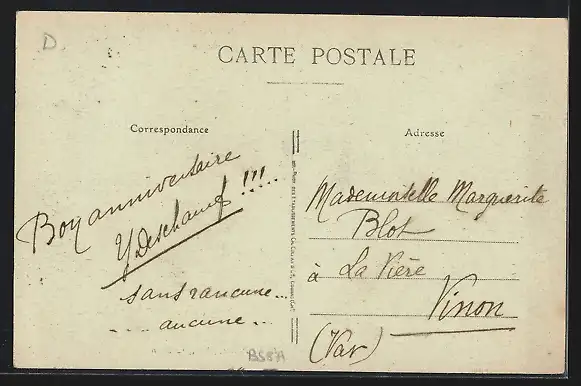 D
CARTE POSTALE
Correspondance
Adresse
Bon anniversaire !!!...
Y Deschamps
sans rancune...
... aucune..
Mademoiselle Marguerite
Blot
à La Vière
Vinon
(Var)
BS8A